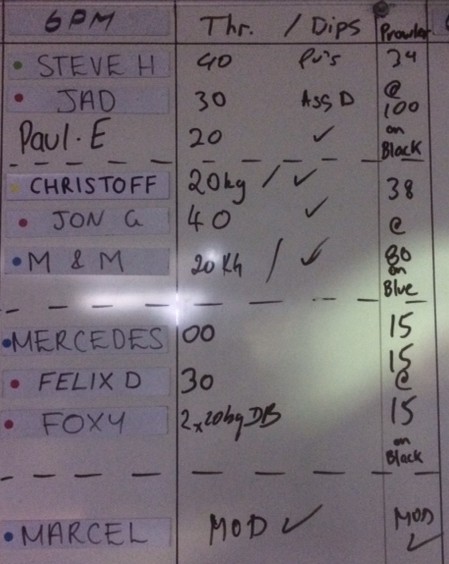 6PM Thr. / Dips Prowler
STEVE H 40 PU's 34
JAD 30 Ass D @ 100
Paul. E 20 ✓ on Black
CHRISTOFF 20kg / ✓ 38
JON G 40 ✓ @
M & M 20 KG / ✓ 80 on Blue
MERCEDES 00 15
FELIX D 30 15 @
FOXY 2x20kg DB 15 on Black
MARCEL MOD ✓ MOD ✓